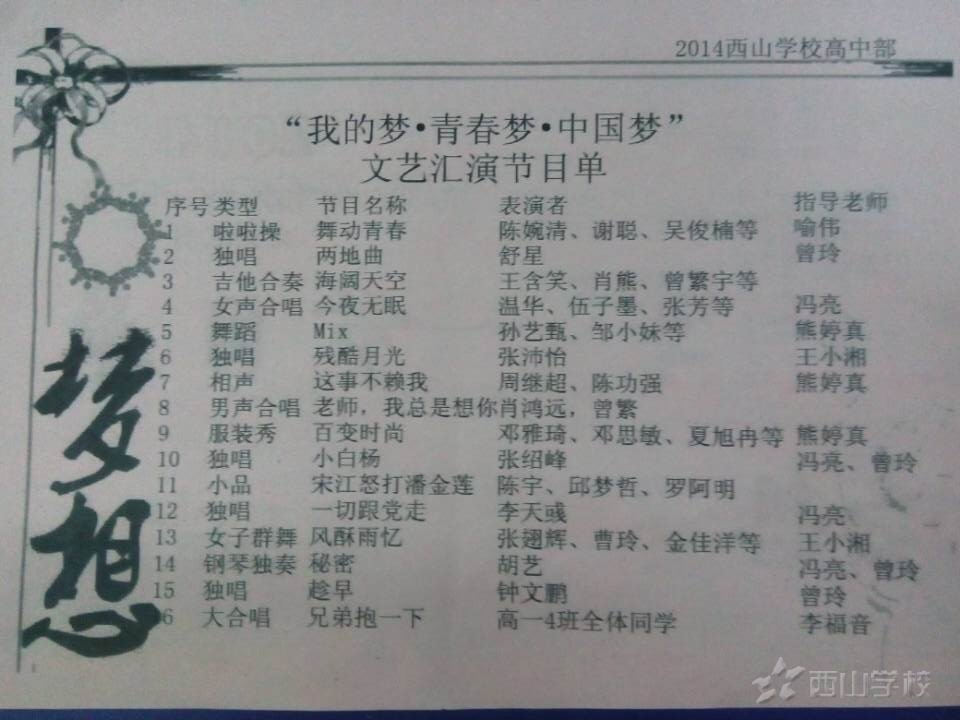 2014西山学校高中部
“我的梦·青春梦·中国梦”
文艺汇演节目单
序号 类型 节目名称 表演者 指导老师
1 啦啦操 舞动青春 陈婉清、谢聪、吴俊楠等 喻伟
2 独唱 两地曲 舒星 曾玲
3 吉他合奏 海阔天空 王含笑、肖熊、曾繁宇等
4 女声合唱 今夜无眠 温华、伍子墨、张芳等 冯亮
5 舞蹈 Mix 孙艺甄、邹小妹等 熊婷真
6 独唱 残酷月光 张沛怡 王小湘
7 相声 这事不赖我 周继超、陈功强 熊婷真
8 男声合唱 老师，我总是想你肖鸿远，曾繁
9 服装秀 百变时尚 邓雅琦、邓思敏、夏旭冉等 熊婷真
10 独唱 小白杨 张绍峰 冯亮、曾玲
11 小品 宋江怒打潘金莲 陈宇、邱梦哲、罗阿明
12 独唱 一切跟党走 李天彧 冯亮
13 女子群舞 风酥雨忆 张翅辉、曹玲、金佳洋等 王小湘
14 钢琴独奏 秘密 胡艺 冯亮、曾玲
15 独唱 趁早 钟文鹏 曾玲
6 大合唱 兄弟抱一下 高一4班全体同学 李福音
梦想
西山学校